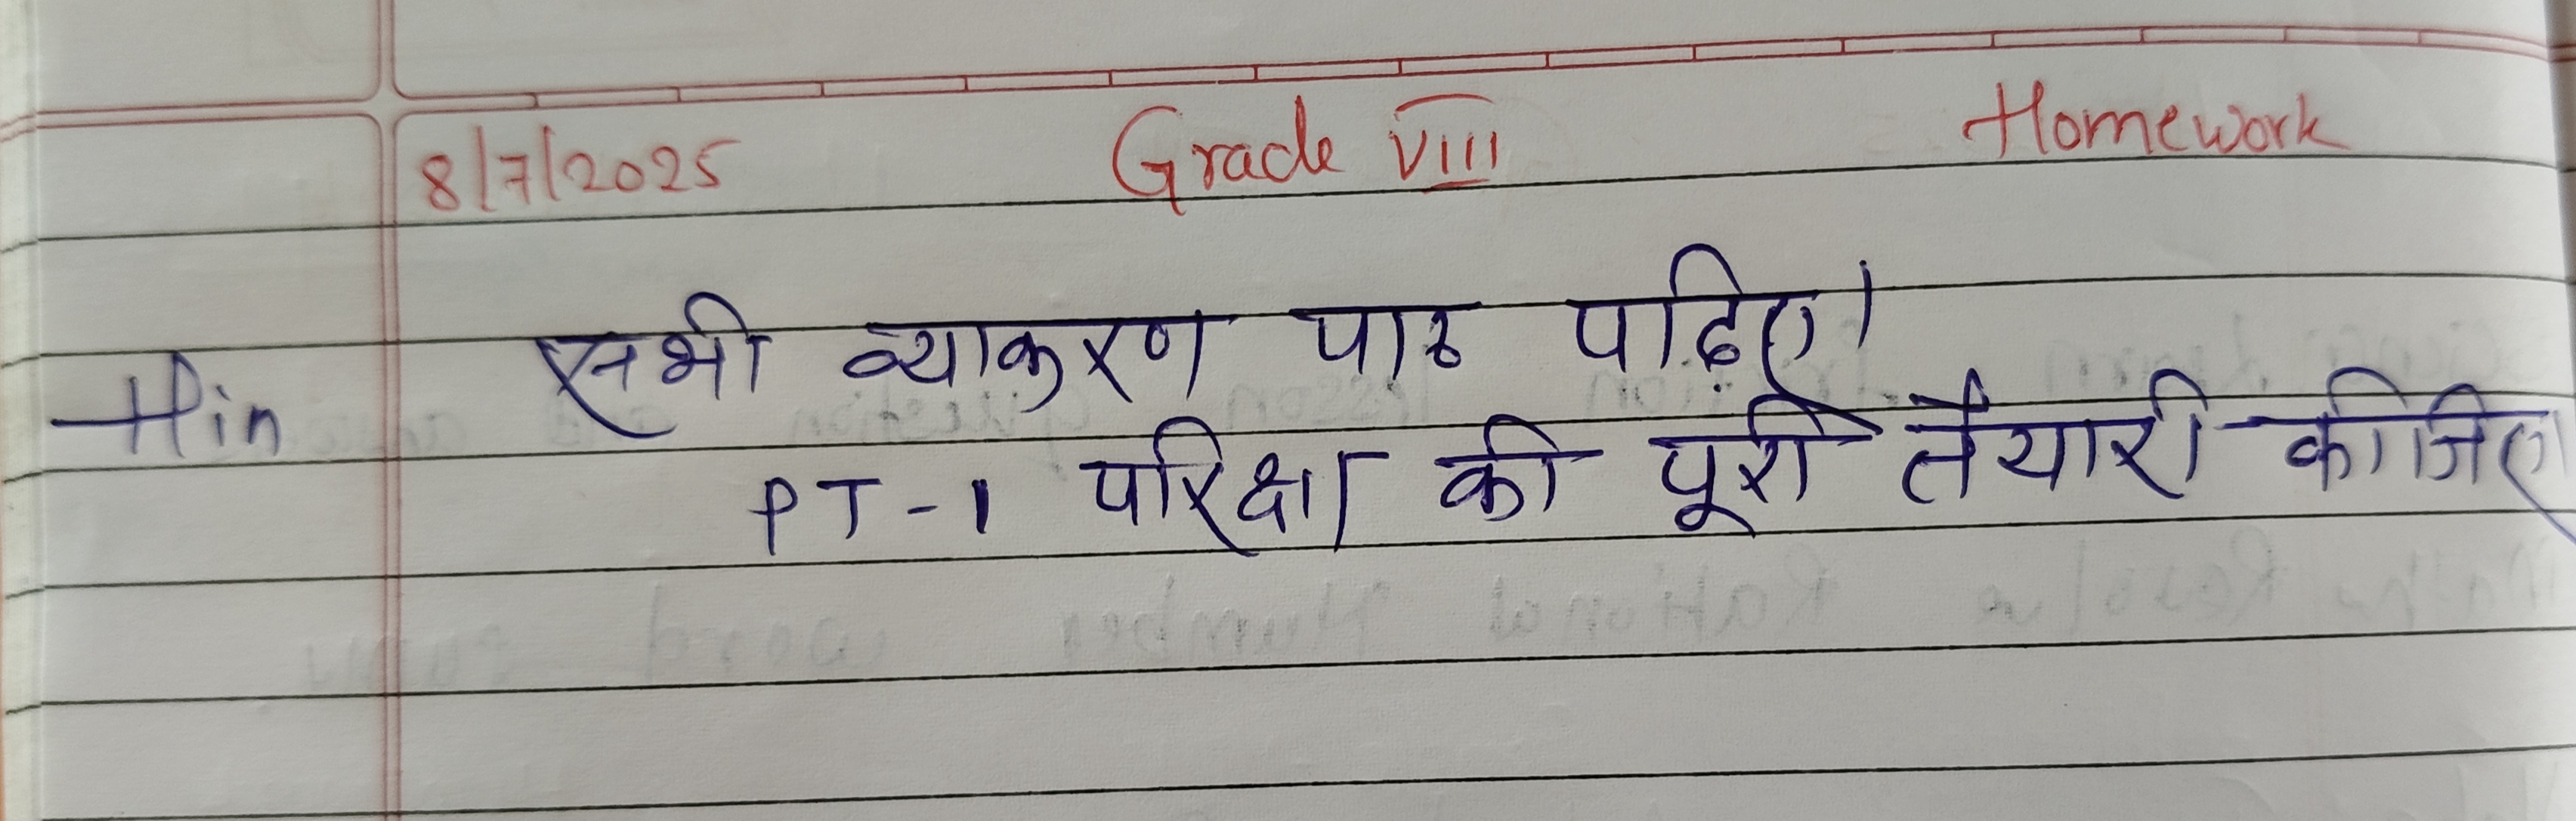 8/7/2025 Grade VIII Homework
Hin सभी व्याकरण पाठ पढ़िए।
PT-1 परिक्षा की पूरी तैयारी कीजिए